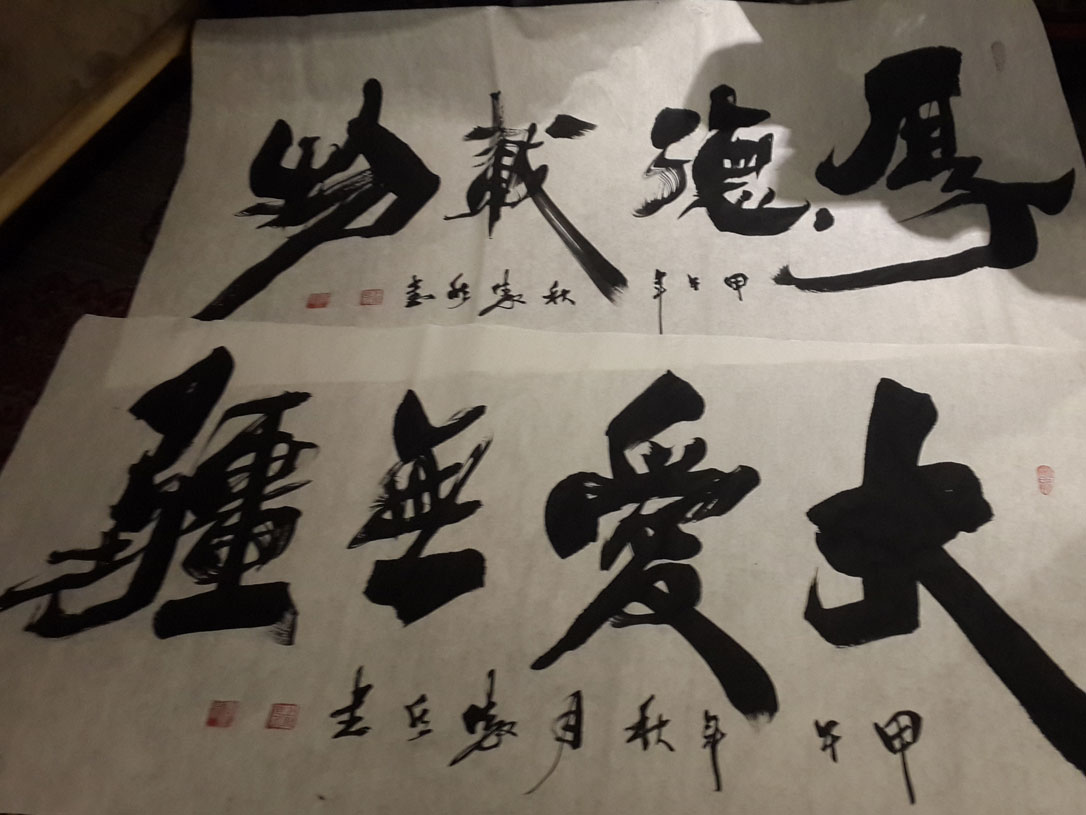 厚德載物
甲午年秋書
大愛無疆
甲午年秋月書